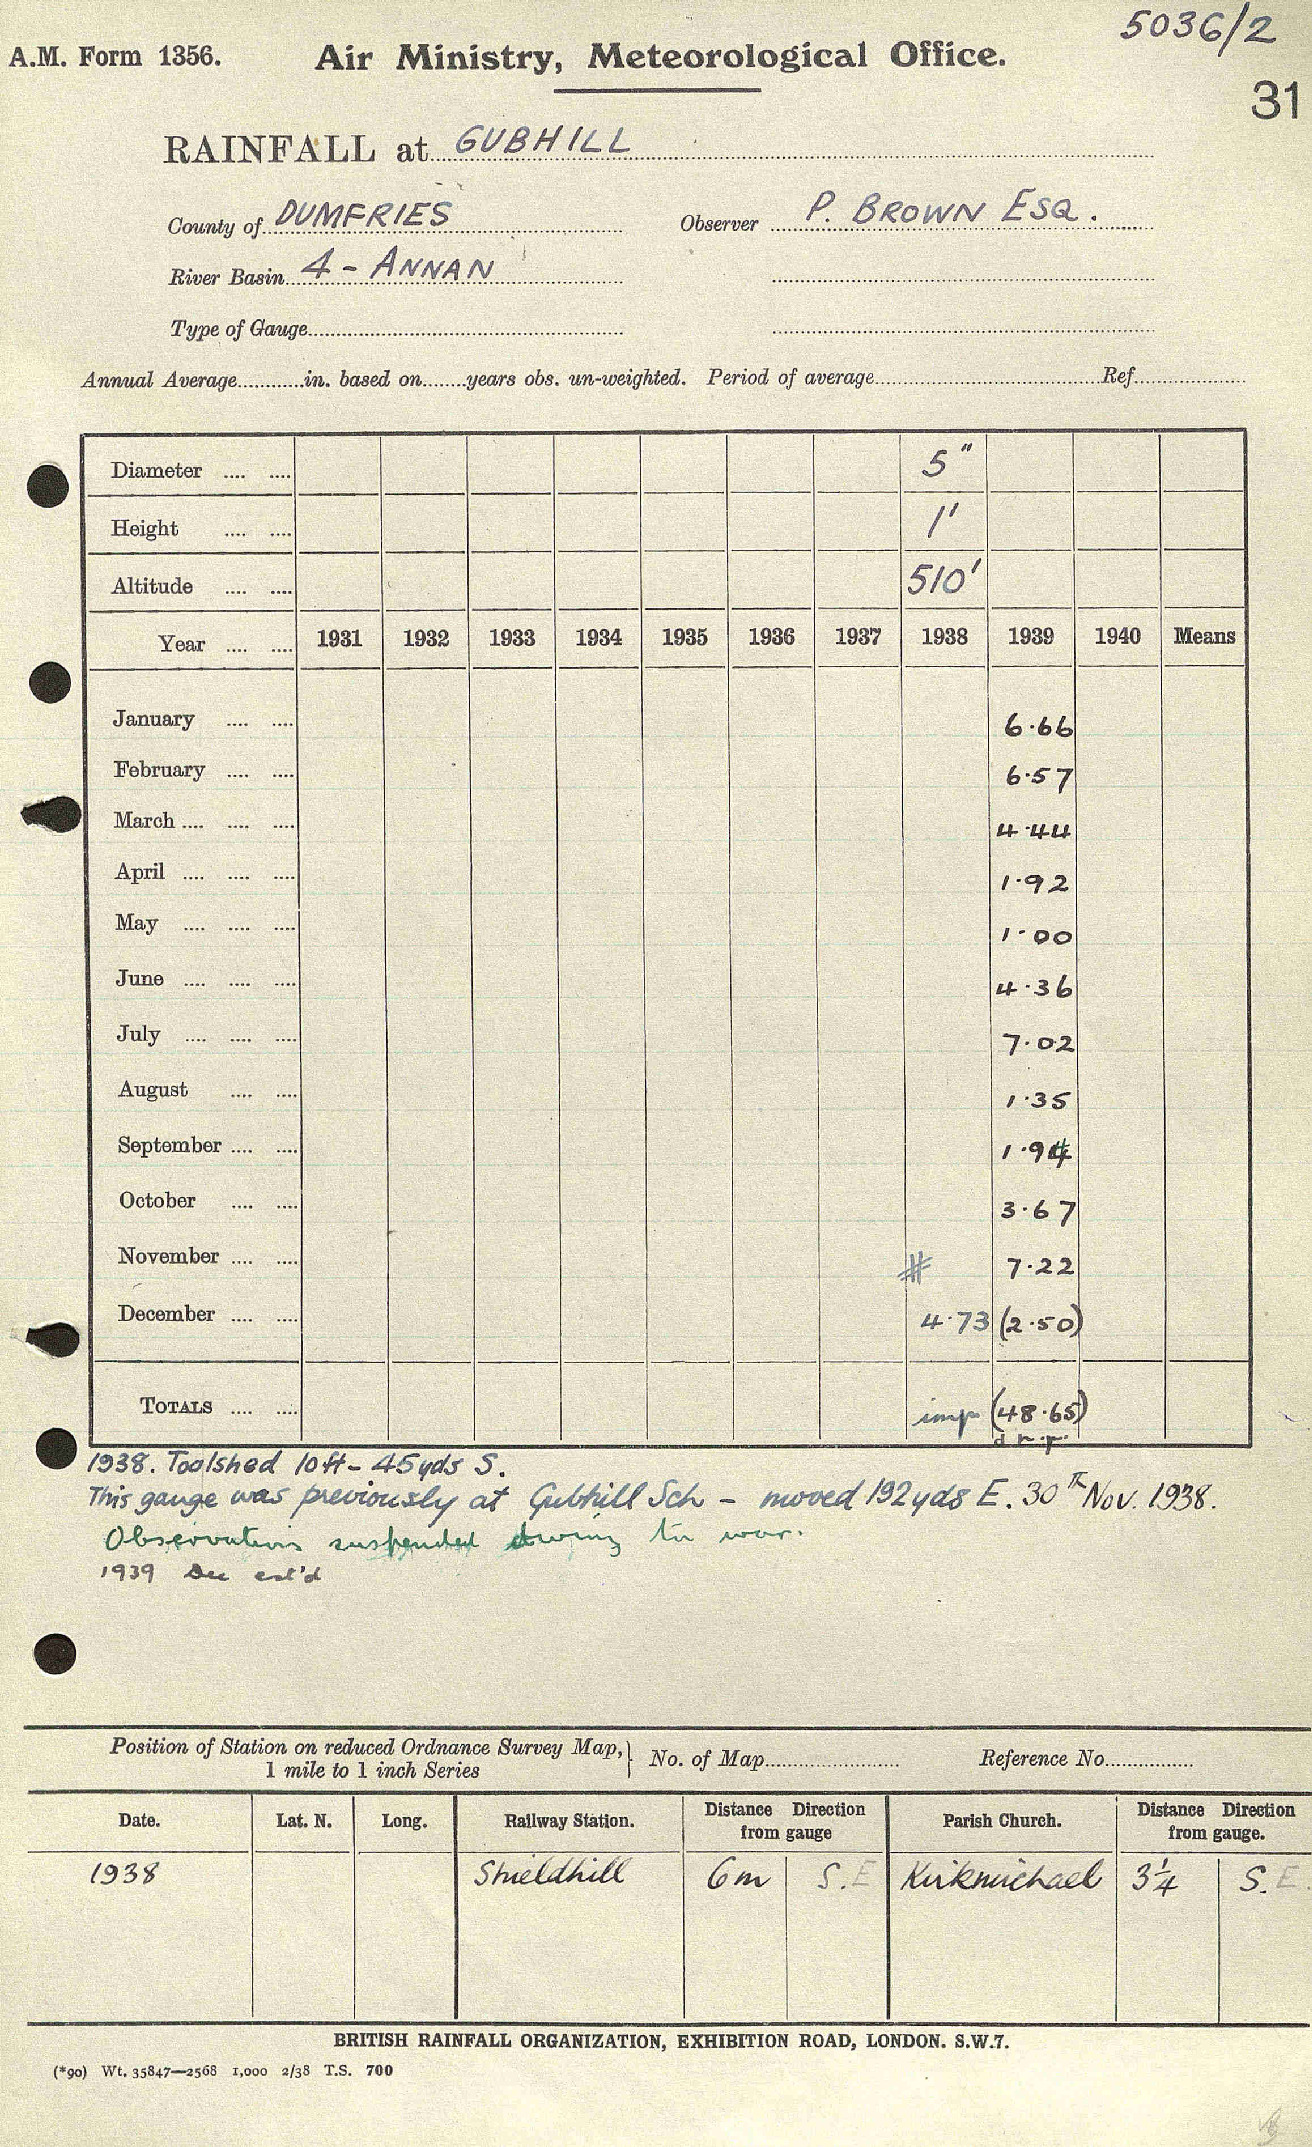 5036/2
A.M. Form 1356. Air Ministry, Meteorological Office.
31
RAINFALL at GUBHILL
County of DUMFRIES Observer P. BROWN ESQ.
River Basin 4 - ANNAN
Type of Gauge
Annual Average in. based on years obs. un-weighted. Period of average Ref.
Diameter .... .... 5"
Height .... .... 1'
Altitude .... .... 510'
Year .... .... 1931 1932 1933 1934 1935 1936 1937 1938 1939 1940 Means
January .... .... 6.66
February .... .... 6.57
March .... .... .... 4.44
April .... .... .... 1.92
May .... .... .... 1.00
June .... .... .... 4.36
July .... .... .... 7.02
August .... .... 1.35
September .... .... 1.94
October .... .... 3.67
November .... .... # 7.22
December .... .... 4.73 (2.50)
TOTALS .... .... imp (48.65)
d n.p.
1938. Toolshed 10ft - 45yds S.
This gauge was previously at Gubhill Sch - moved 192yds E. 30th Nov. 1938.
Observations suspended during the war.
1939 Dec est'd
Position of Station on reduced Ordnance Survey Map, } No. of Map Reference No.
1 mile to 1 inch Series
Date. Lat. N. Long. Railway Station. Distance Direction Parish Church. Distance Direction
from gauge from gauge.
1938 Shieldhill 6m S.E Kirkmichael 3¼ S.E.
BRITISH RAINFALL ORGANIZATION, EXHIBITION ROAD, LONDON. S.W.7.
(*90) Wt. 35847—2568 1,000 2/38 T.S. 700